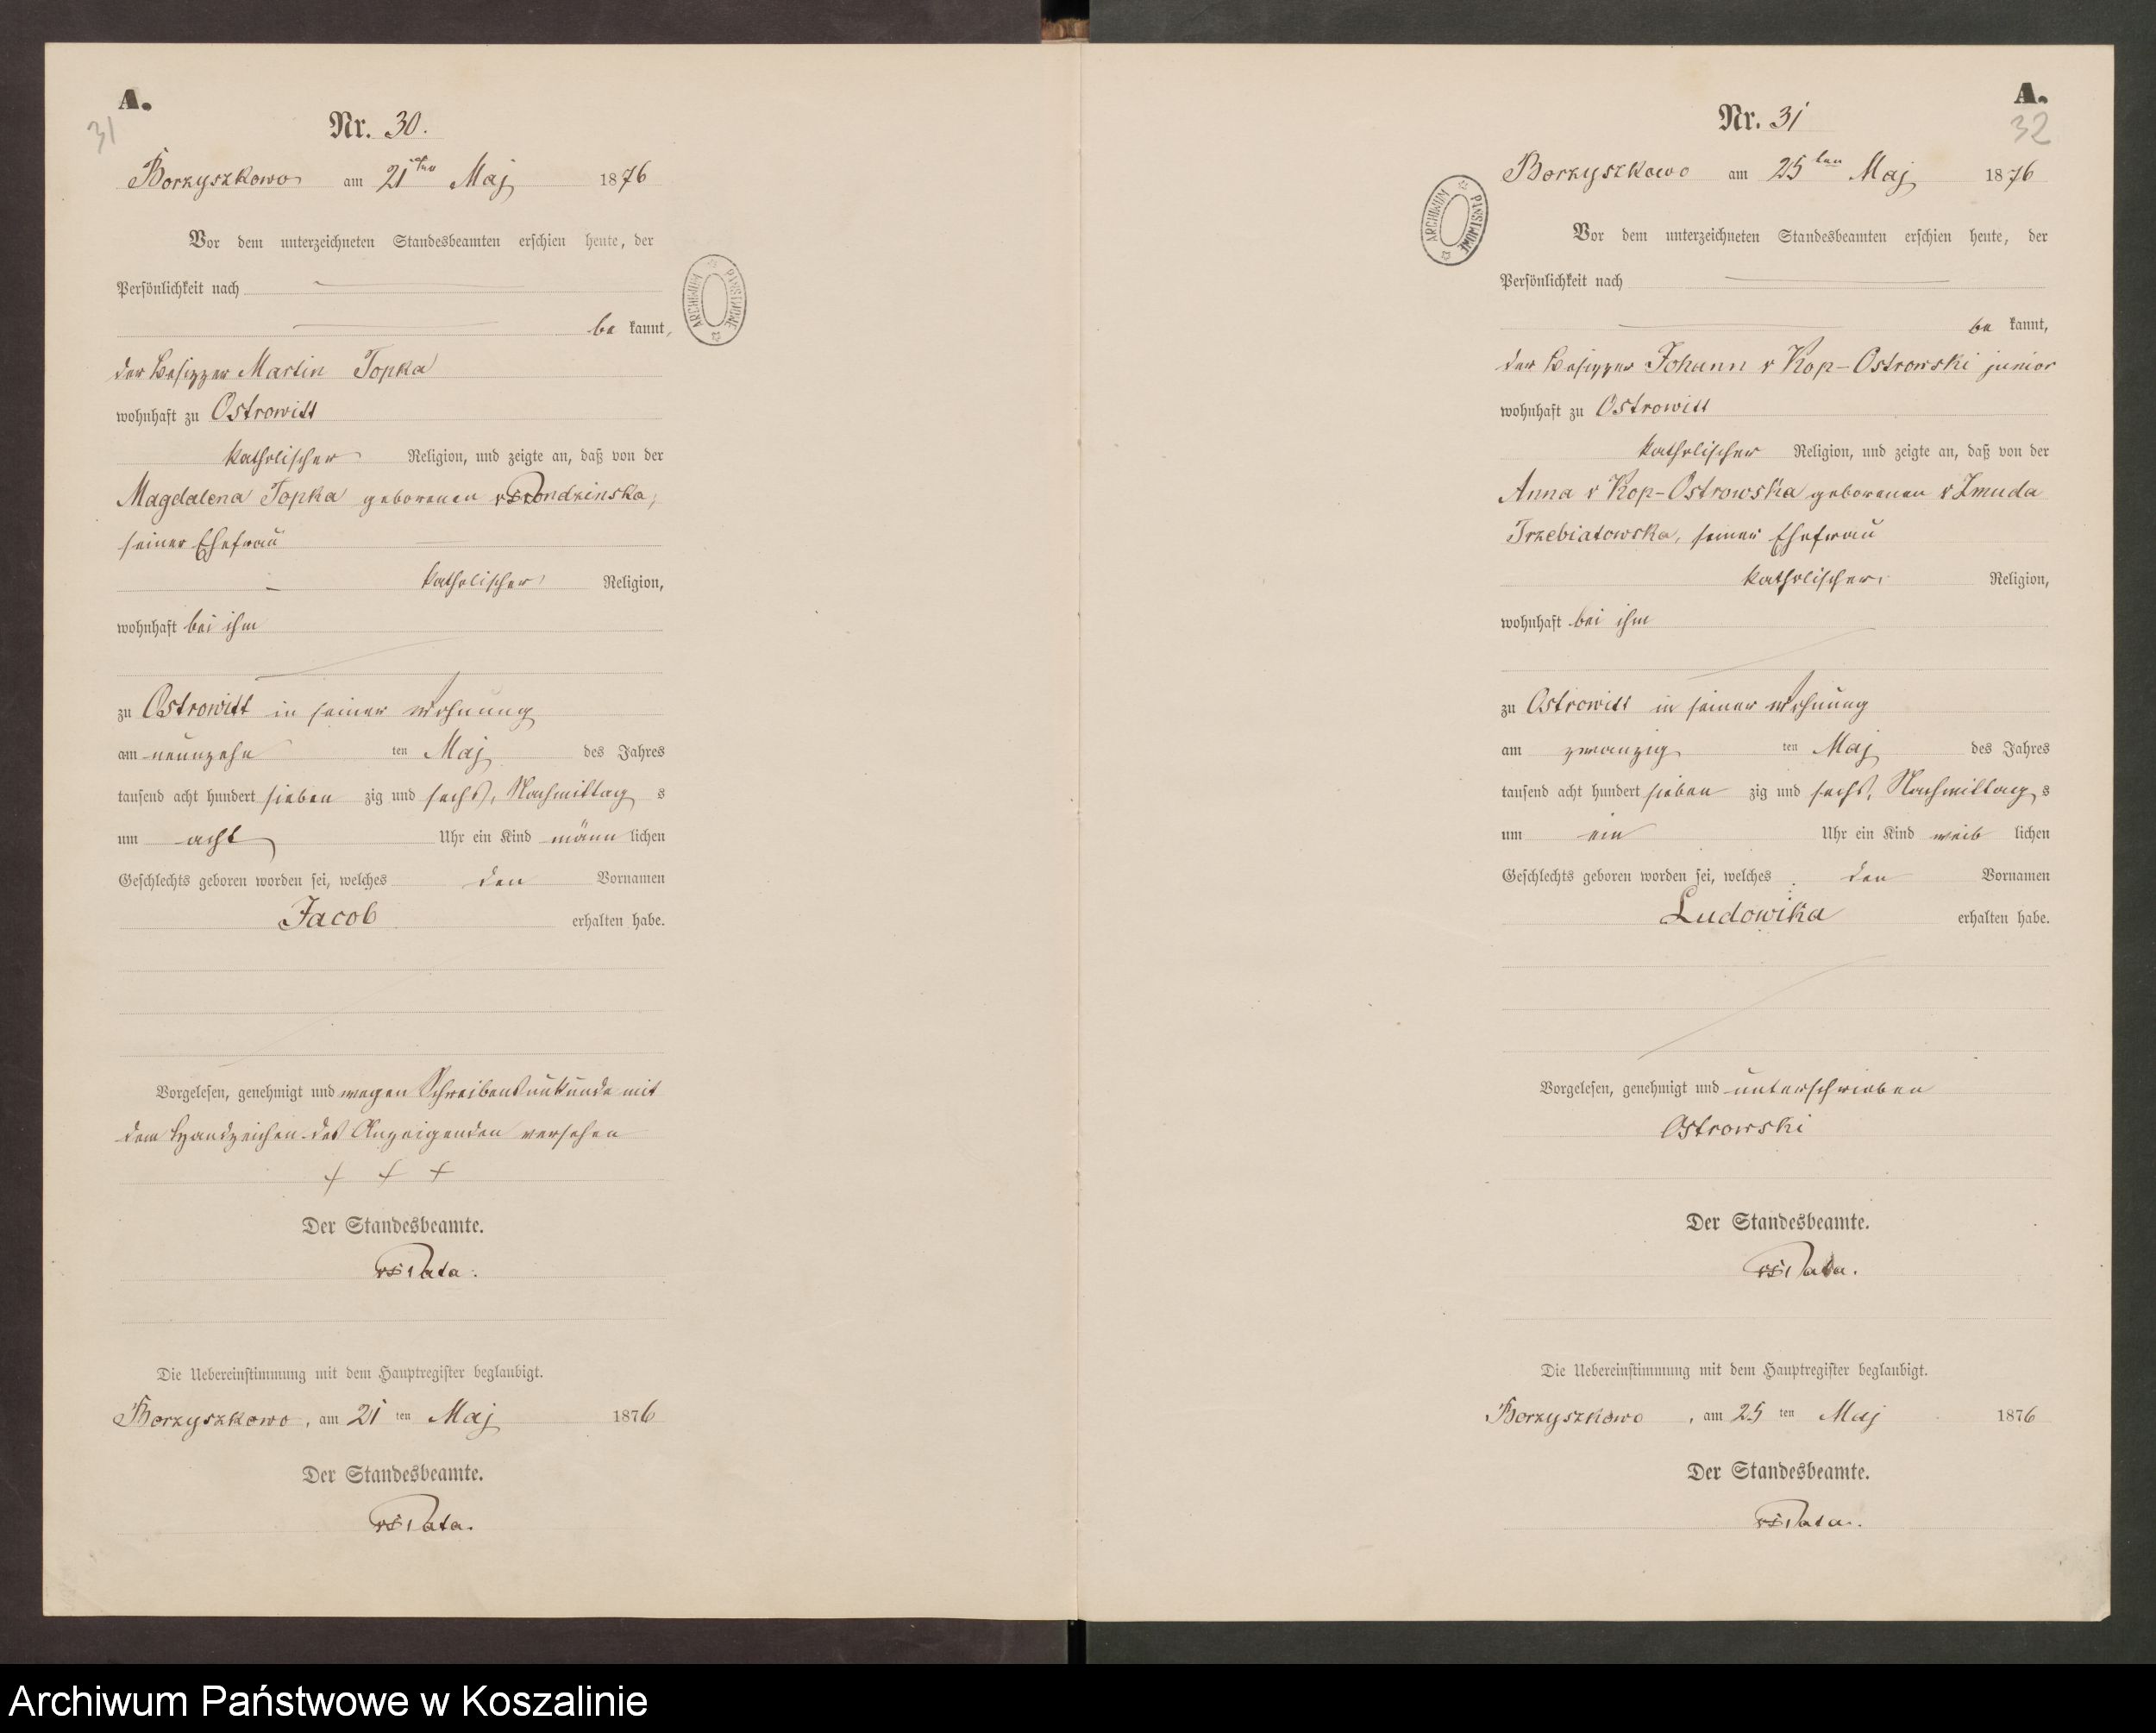 A.
31
Nr. 30.
Borzyszkowo am 21ten Maj 1876
Vor dem unterzeichneten Standesbeamten erschien heute, der
Persönlichkeit nach
be kannt,
der Besitzer Martin Topka
wohnhaft zu Ostrowitt
katholischer Religion, und zeigte an, daß von der
Magdalena Topka geborenen
seiner Ehefrau
katholischer Religion,
wohnhaft bei ihm
zu Ostrowitt in seiner Wohnung
am neunzehn ten Maj des Jahres
tausend acht hundert sieben zig und sechs, Nachmittag s
um acht Uhr ein Kind männ lichen
Geschlechts geboren worden sei, welches den Vornamen
Jacob erhalten habe.
Vorgelesen, genehmigt und wegen Schreibensunkunde mit
dem Handzeichen des Anzeigenden versehen
+ + +
Der Standesbeamte.
Die Uebereinstimmung mit dem Hauptregister beglaubigt.
Borzyszkowo, am 21 ten Maj 1876
Der Standesbeamte.
ARCHIWUM PAŃSTWOWE
A.
32
Nr. 31
Borzyszkowo am 25ten Maj 1876
Vor dem unterzeichneten Standesbeamten erschien heute, der
Persönlichkeit nach
be kannt,
der Besitzer Johann v Kop-Ostrowski junior
wohnhaft zu Ostrowitt
katholischer Religion, und zeigte an, daß von der
Anna v Kop-Ostrowska geborenen v Zmuda
Trzebiatowska, seiner Ehefrau
katholischer Religion,
wohnhaft bei ihm
zu Ostrowitt in seiner Wohnung
am zwanzig ten Maj des Jahres
tausend acht hundert sieben zig und sechs, Nachmittag s
um ein Uhr ein Kind weib lichen
Geschlechts geboren worden sei, welches den Vornamen
Ludowika erhalten habe.
Vorgelesen, genehmigt und unterschrieben
Ostrowski
Der Standesbeamte.
Die Uebereinstimmung mit dem Hauptregister beglaubigt.
Borzyszkowo, am 25 ten Maj 1876
Der Standesbeamte.
ARCHIWUM PAŃSTWOWE
Archiwum Państwowe w Koszalinie